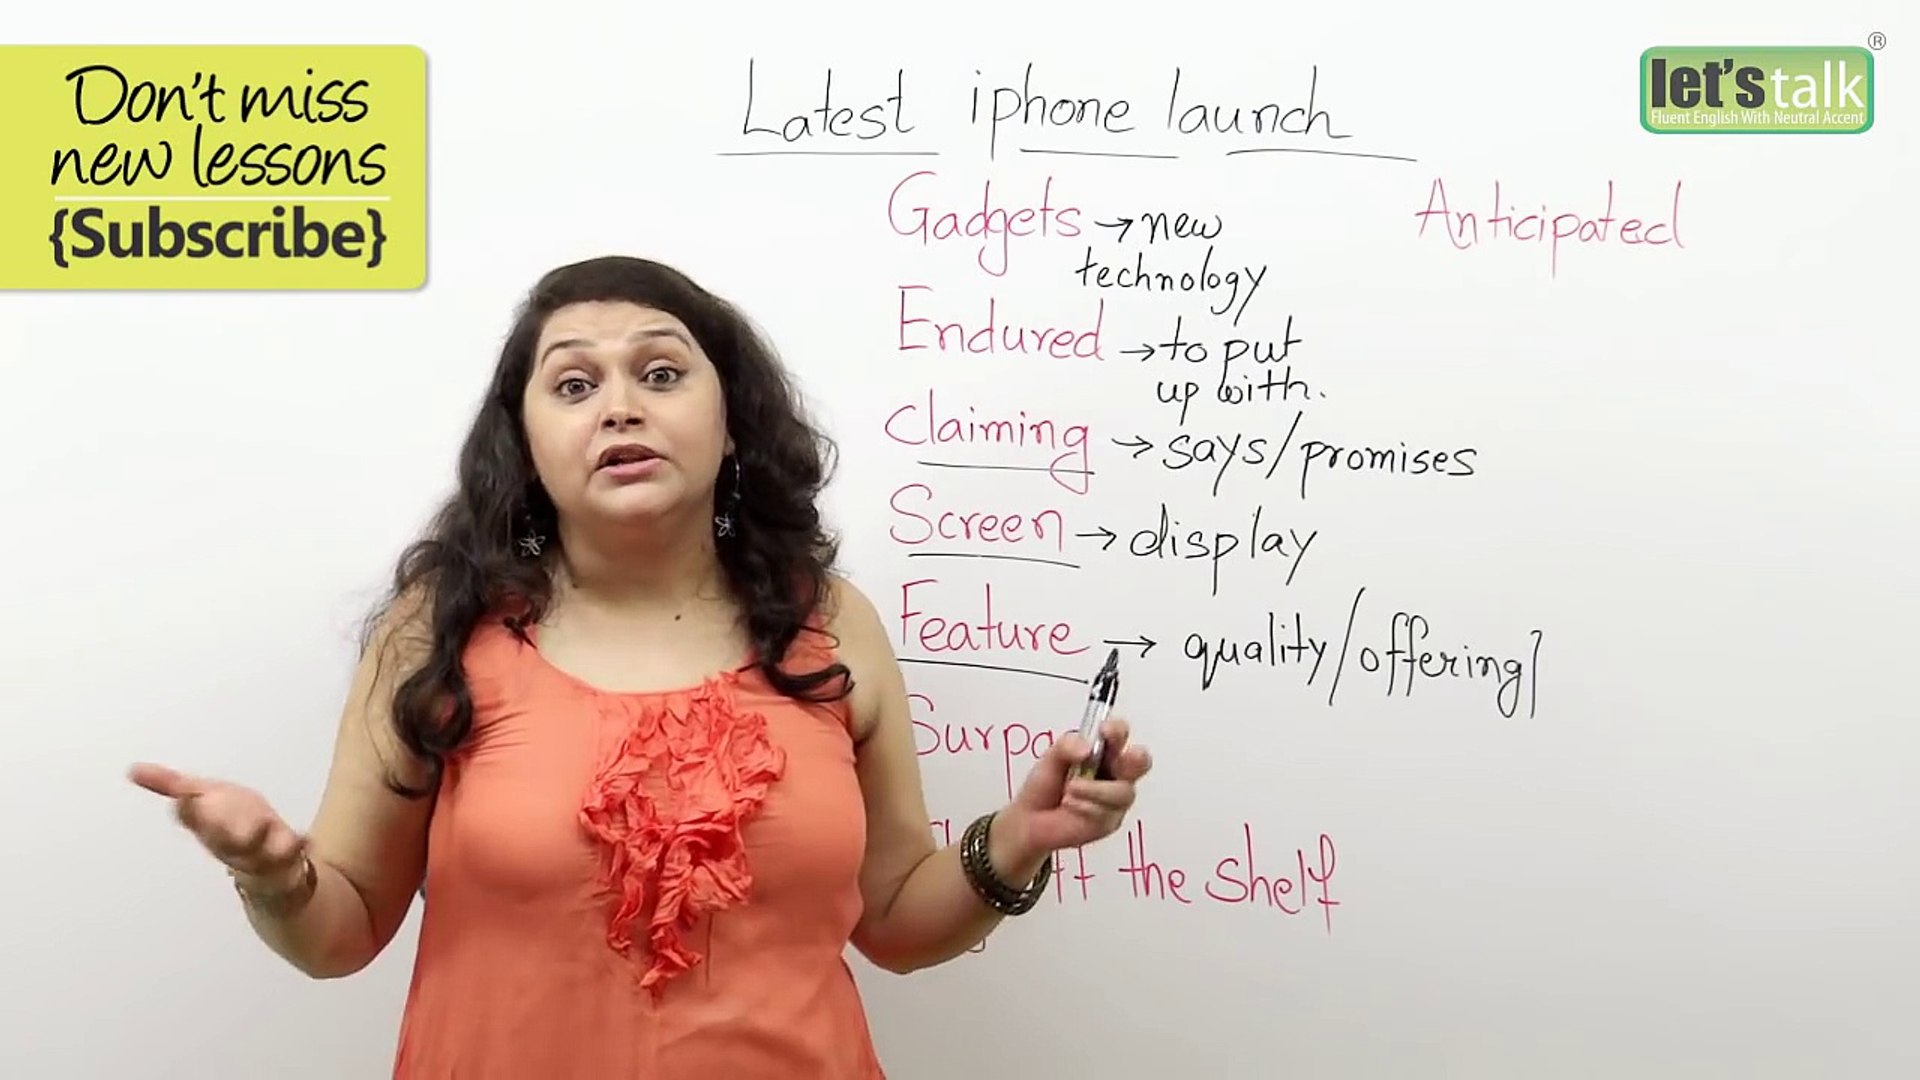 Don't miss
new lessons
{Subscribe}
let's talk
®
Fluent English With Neutral Accent
Latest iphone launch
Gadgets → new
technology
Anticipated
Endured → to put
up with.
Claiming → says/promises
Screen → display
Feature → quality/offering]
the shelf